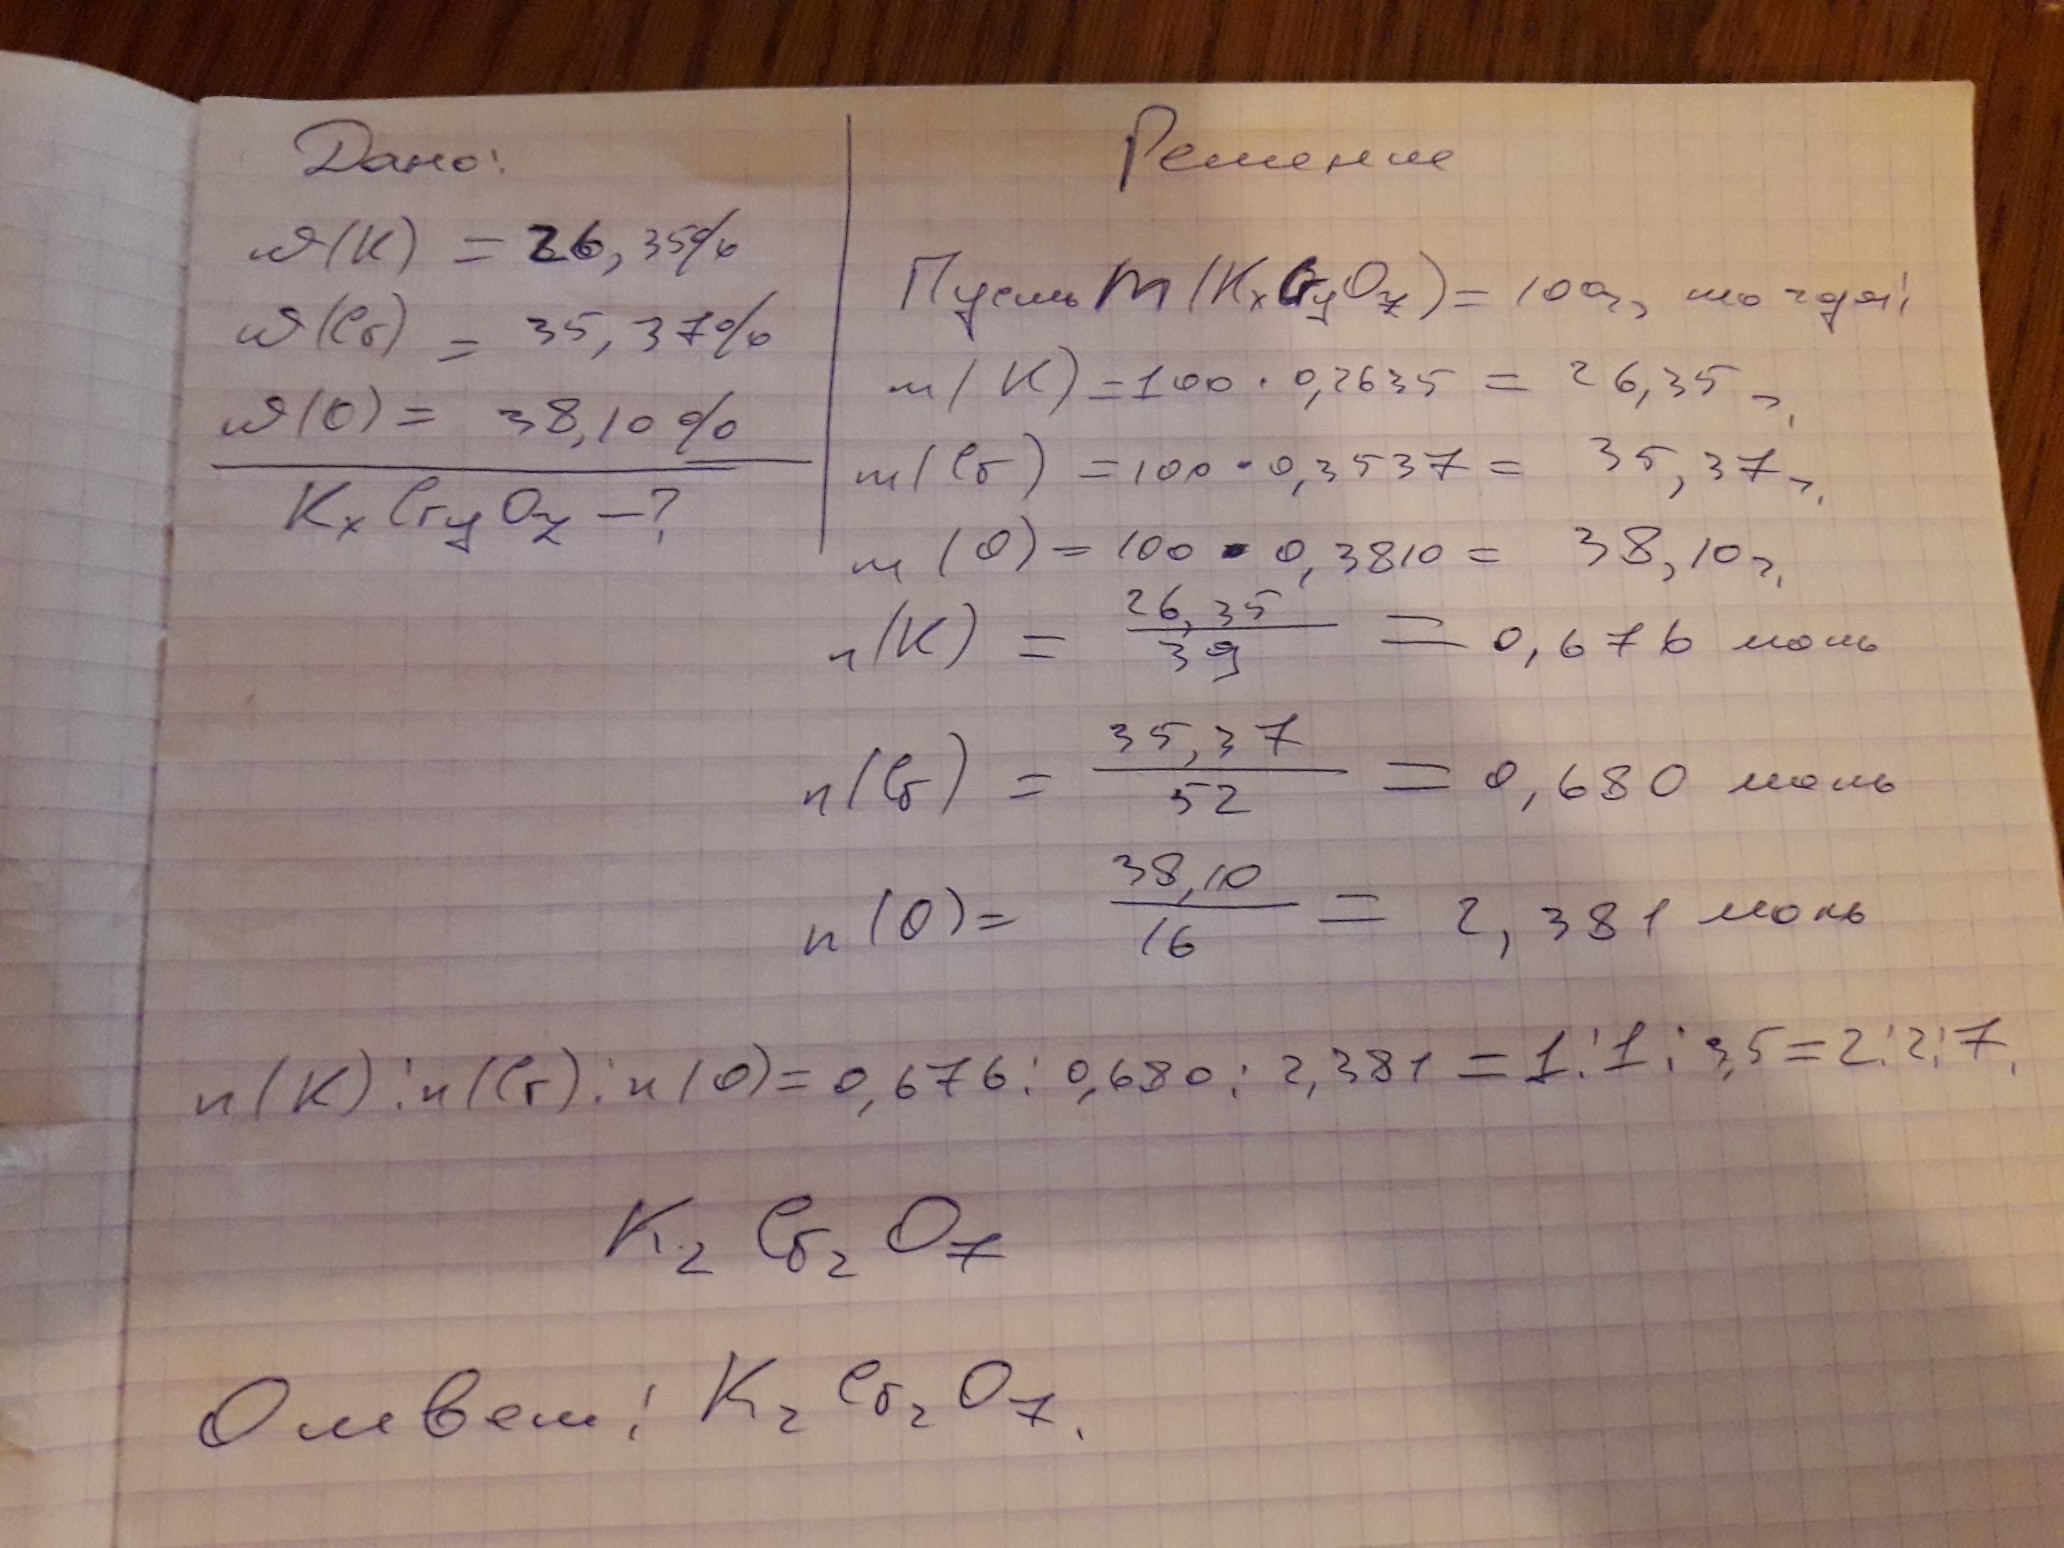 Дано:
ω(K) = 26,35%
ω(Cr) = 35,37%
ω(O) = 38,10%
KxCryOz – ?
Решение
Пусть m(KxCryOz) = 100г, тогда:
m(K) = 100 · 0,2635 = 26,35 г.
m(Cr) = 100 · 0,3537 = 35,37 г.
m(O) = 100 · 0,3810 = 38,10 г.
n(K) = 26,35/39 = 0,676 моль
n(Cr) = 35,37/52 = 0,680 моль
n(O) = 38,10/16 = 2,381 моль
n(K):n(Cr):n(O) = 0,676 : 0,680 : 2,381 = 1:1:3,5 = 2:2:7.
K2Cr2O7
Ответ: K2Cr2O7.